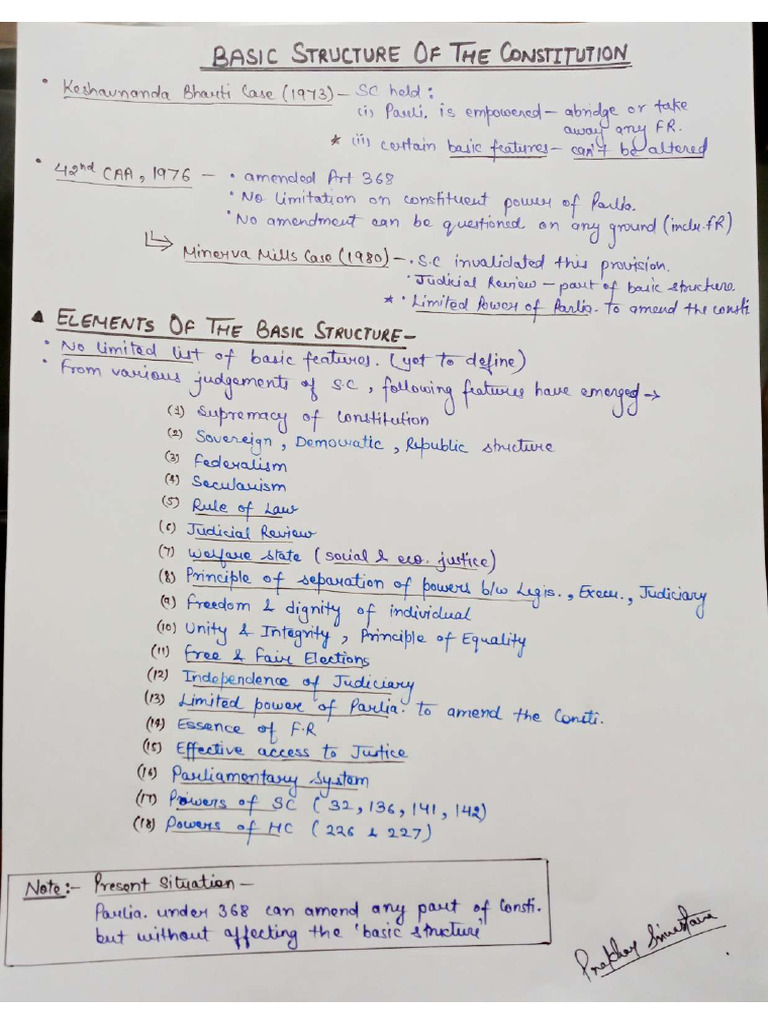 BASIC STRUCTURE OF THE CONSTITUTION
• Keshavnanda Bharti Case (1973) – SC held :
(i) Parli. is empowered – abridge or take
away any FR.
* (ii) certain basic features – can't be altered
• 42nd CAA, 1976 – • amended Art 368
• No limitation on constituent power of Parlia.
• No amendment can be questioned on any ground (inclu. FR)
↳ Minerva Mills Case (1980) – • S.C invalidated this provision.
• Judicial Review – part of basic structure.
* • Limited Power of Parlia. to amend the consti.
▲ ELEMENTS OF THE BASIC STRUCTURE –
• No limited list of basic features. (yet to define)
• From various judgements of S.C, following features have emerged →
(1) Supremacy of constitution
(2) Sovereign, Democratic, Republic structure
(3) Federalism
(4) Secularism
(5) Rule of Law
(6) Judicial Review
(7) Welfare state (social & eco. justice)
(8) Principle of separation of powers b/w Legis., Execu., Judiciary
(9) Freedom & dignity of individual
(10) Unity & Integrity, Principle of Equality
(11) Free & Fair Elections
(12) Independence of Judiciary
(13) Limited power of Parlia. to amend the Consti.
(14) Essence of F.R
(15) Effective access to Justice
(16) Parliamentary System
(17) Powers of SC (32, 136, 141, 142)
(18) Powers of HC (226 & 227)
Note :– Present Situation –
Parlia. under 368 can amend any part of Consti.
but without affecting the 'basic structure'
Prakhar Srivastava